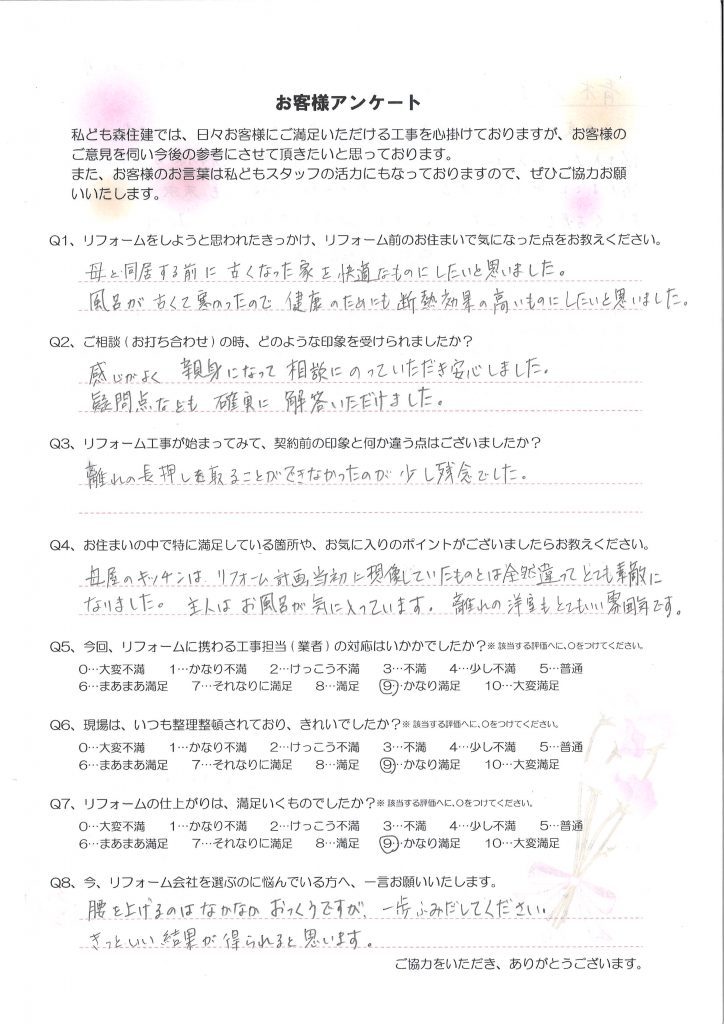 お客様アンケート
私ども森住建では、日々お客様にご満足いただける工事を心掛けておりますが、お客様の
ご意見を伺い今後の参考にさせて頂きたいと思っております。
また、お客様のお言葉は私どもスタッフの活力にもなっておりますので、ぜひご協力お願
いいたします。
Q1、リフォームをしようと思われたきっかけ、リフォーム前のお住まいで気になった点をお教えください。
母と同居する前に古くなった家を快適なものにしたいと思いました。
風呂が古くて寒かったので健康のためにも断熱効果の高いものにしたいと思いました。
Q2、ご相談(お打ち合わせ)の時、どのような印象を受けられましたか?
感じがよく親身になって相談にのっていただき安心しました。
疑問点なども確実に解答いただけました。
Q3、リフォーム工事が始まってみて、契約前の印象と何か違う点はございましたか?
離れの長押しを取ることができなかったのが少し残念でした。
Q4、お住まいの中で特に満足している箇所や、お気に入りのポイントがございましたらお教えください。
母屋のキッチンはリフォーム計画当初に想像していたものとは全然違ってとても素敵に
なりました。主人はお風呂が気に入っています。離れの洋室もとてもいい雰囲気です。
Q5、今回、リフォームに携わる工事担当(業者)の対応はいかかでしたか?※該当する評価へに、○をつけてください。
0…大変不満 1…かなり不満 2…けっこう不満 3…不満 4…少し不満 5…普通
6…まあまあ満足 7…それなりに満足 8…満足 9…かなり満足 10…大変満足
Q6、現場は、いつも整理整頓されており、きれいでしたか?※該当する評価へに、○をつけてください。
0…大変不満 1…かなり不満 2…けっこう不満 3…不満 4…少し不満 5…普通
6…まあまあ満足 7…それなりに満足 8…満足 9…かなり満足 10…大変満足
Q7、リフォームの仕上がりは、満足いくものでしたか?※該当する評価へに、○をつけてください。
0…大変不満 1…かなり不満 2…けっこう不満 3…不満 4…少し不満 5…普通
6…まあまあ満足 7…それなりに満足 8…満足 9…かなり満足 10…大変満足
Q8、今、リフォーム会社を選ぶのに悩んでいる方へ、一言お願いいたします。
腰を上げるのはなかなかおっくうですが、一歩ふみだしてください。
きっといい結果が得られると思います。
ご協力をいただき、ありがとうございます。